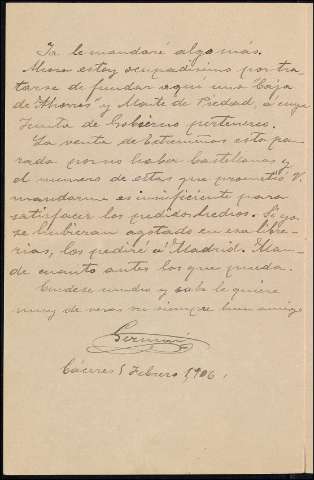 Ya le mandaré algo más.
Ahora estoy ocupadísimo por tra-
tarse de fundar aquí una Caja
de "Ahorros" y Monte de Piedad, a cuya
Junta de Gobierno pertenezco.
La venta de Extremeñas está pa-
rada por no haber Castellanas y
el número de estas que prometió V.
mandarme es insuficiente para
satisfacer los pedidos hechos. Si ya
se hubieran agotado en esa libre-
rías, los pediré a Madrid. Man-
de cuanto antes los que pueda.
Cuídese mucho y sabe le quiere
muy de veras su siempre buen amigo
Germán
Cáceres 5 Febrero 1,906.